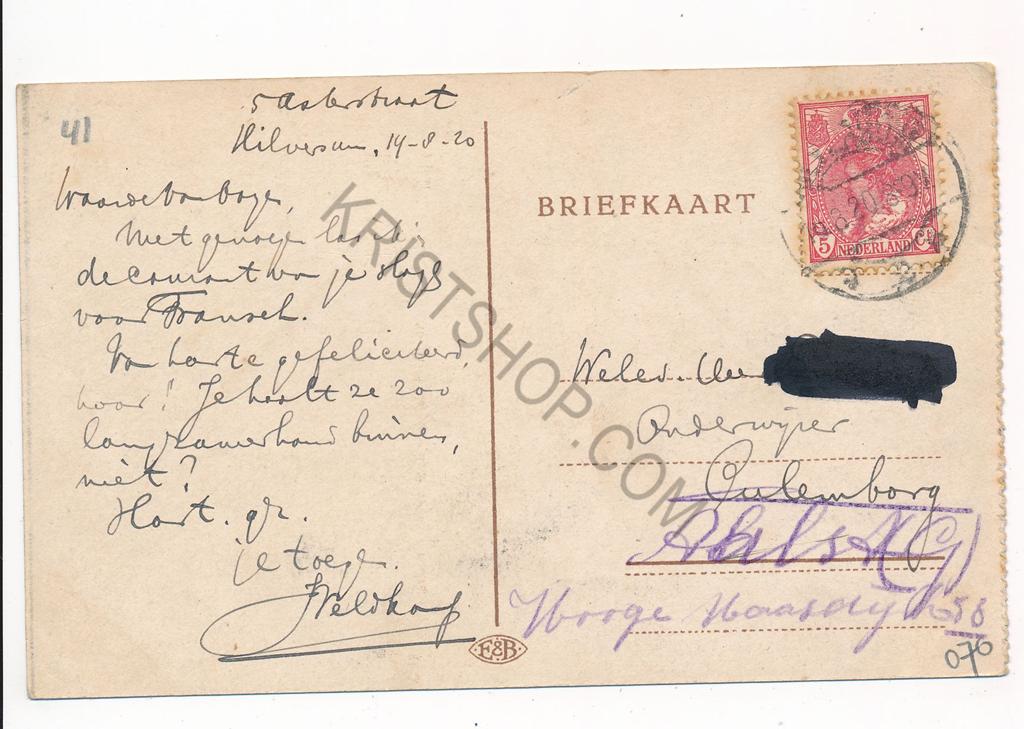 41
Asterstraat
Hilversum, 14-8-20
Met genoegen las ik in
de courant van je slagen
voor Fransch.
Van harte gefeliciteerd,
hoor! Je haalt ze zoo
langzamerhand binnen,
niet?
Hart. gr.
je toegen.
Veldkamp
BRIEFKAART
5 NEDERLAND Ct
8.20.8
Weled. Heer
Onderwijzer
Culemborg
Hooge Maasdijk 58
E&B
076
KRISTSHOP.COM